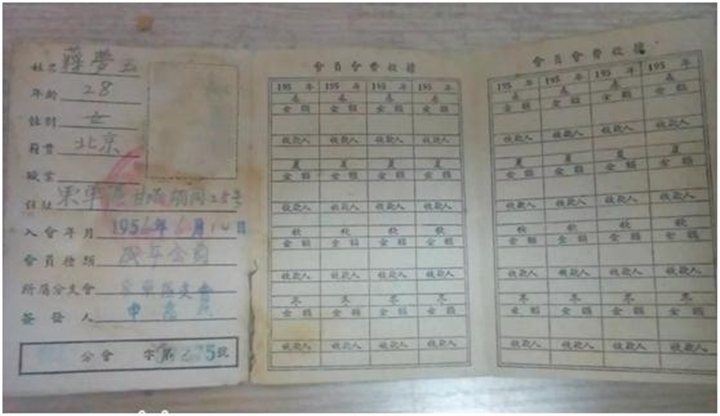 姓名 蘇夢玉
年齡 28
性别 女
籍貫 北京
職業
住址 東單區甘 胡同28号
入會年月 1956年6月14日
會員種類 成年会員
所屬分支會
簽發人
分會 字第 號
會員會費收據
195 年 195 年 195 年 195 年
春 春 春 春
金額 金額 金額 金額
收款人 收款人 收款人 收款人
夏 夏 夏 夏
金額 金額 金額 金額
收款人 收款人 收款人 收款人
秋 秋 秋 秋
金額 金額 金額 金額
收款人 收款人 收款人 收款人
冬 冬 冬 冬
金額 金額 金額 金額
收款人 收款人 收款人 收款人
會員會費收據
195 年 195 年 195 年 195 年
春 春 春 春
金額 金額 金額 金額
收款人 收款人 收款人 收款人
夏 夏 夏 夏
金額 金額 金額 金額
收款人 收款人 收款人 收款人
秋 秋 秋 秋
金額 金額 金額 金額
收款人 收款人 收款人 收款人
冬 冬 冬 冬
金額 金額 金額 金額
收款人 收款人 收款人 收款人